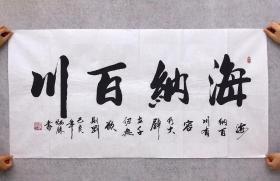 海納百川
海納百川有容乃大壁立千仞無欲則剛
己亥年
書